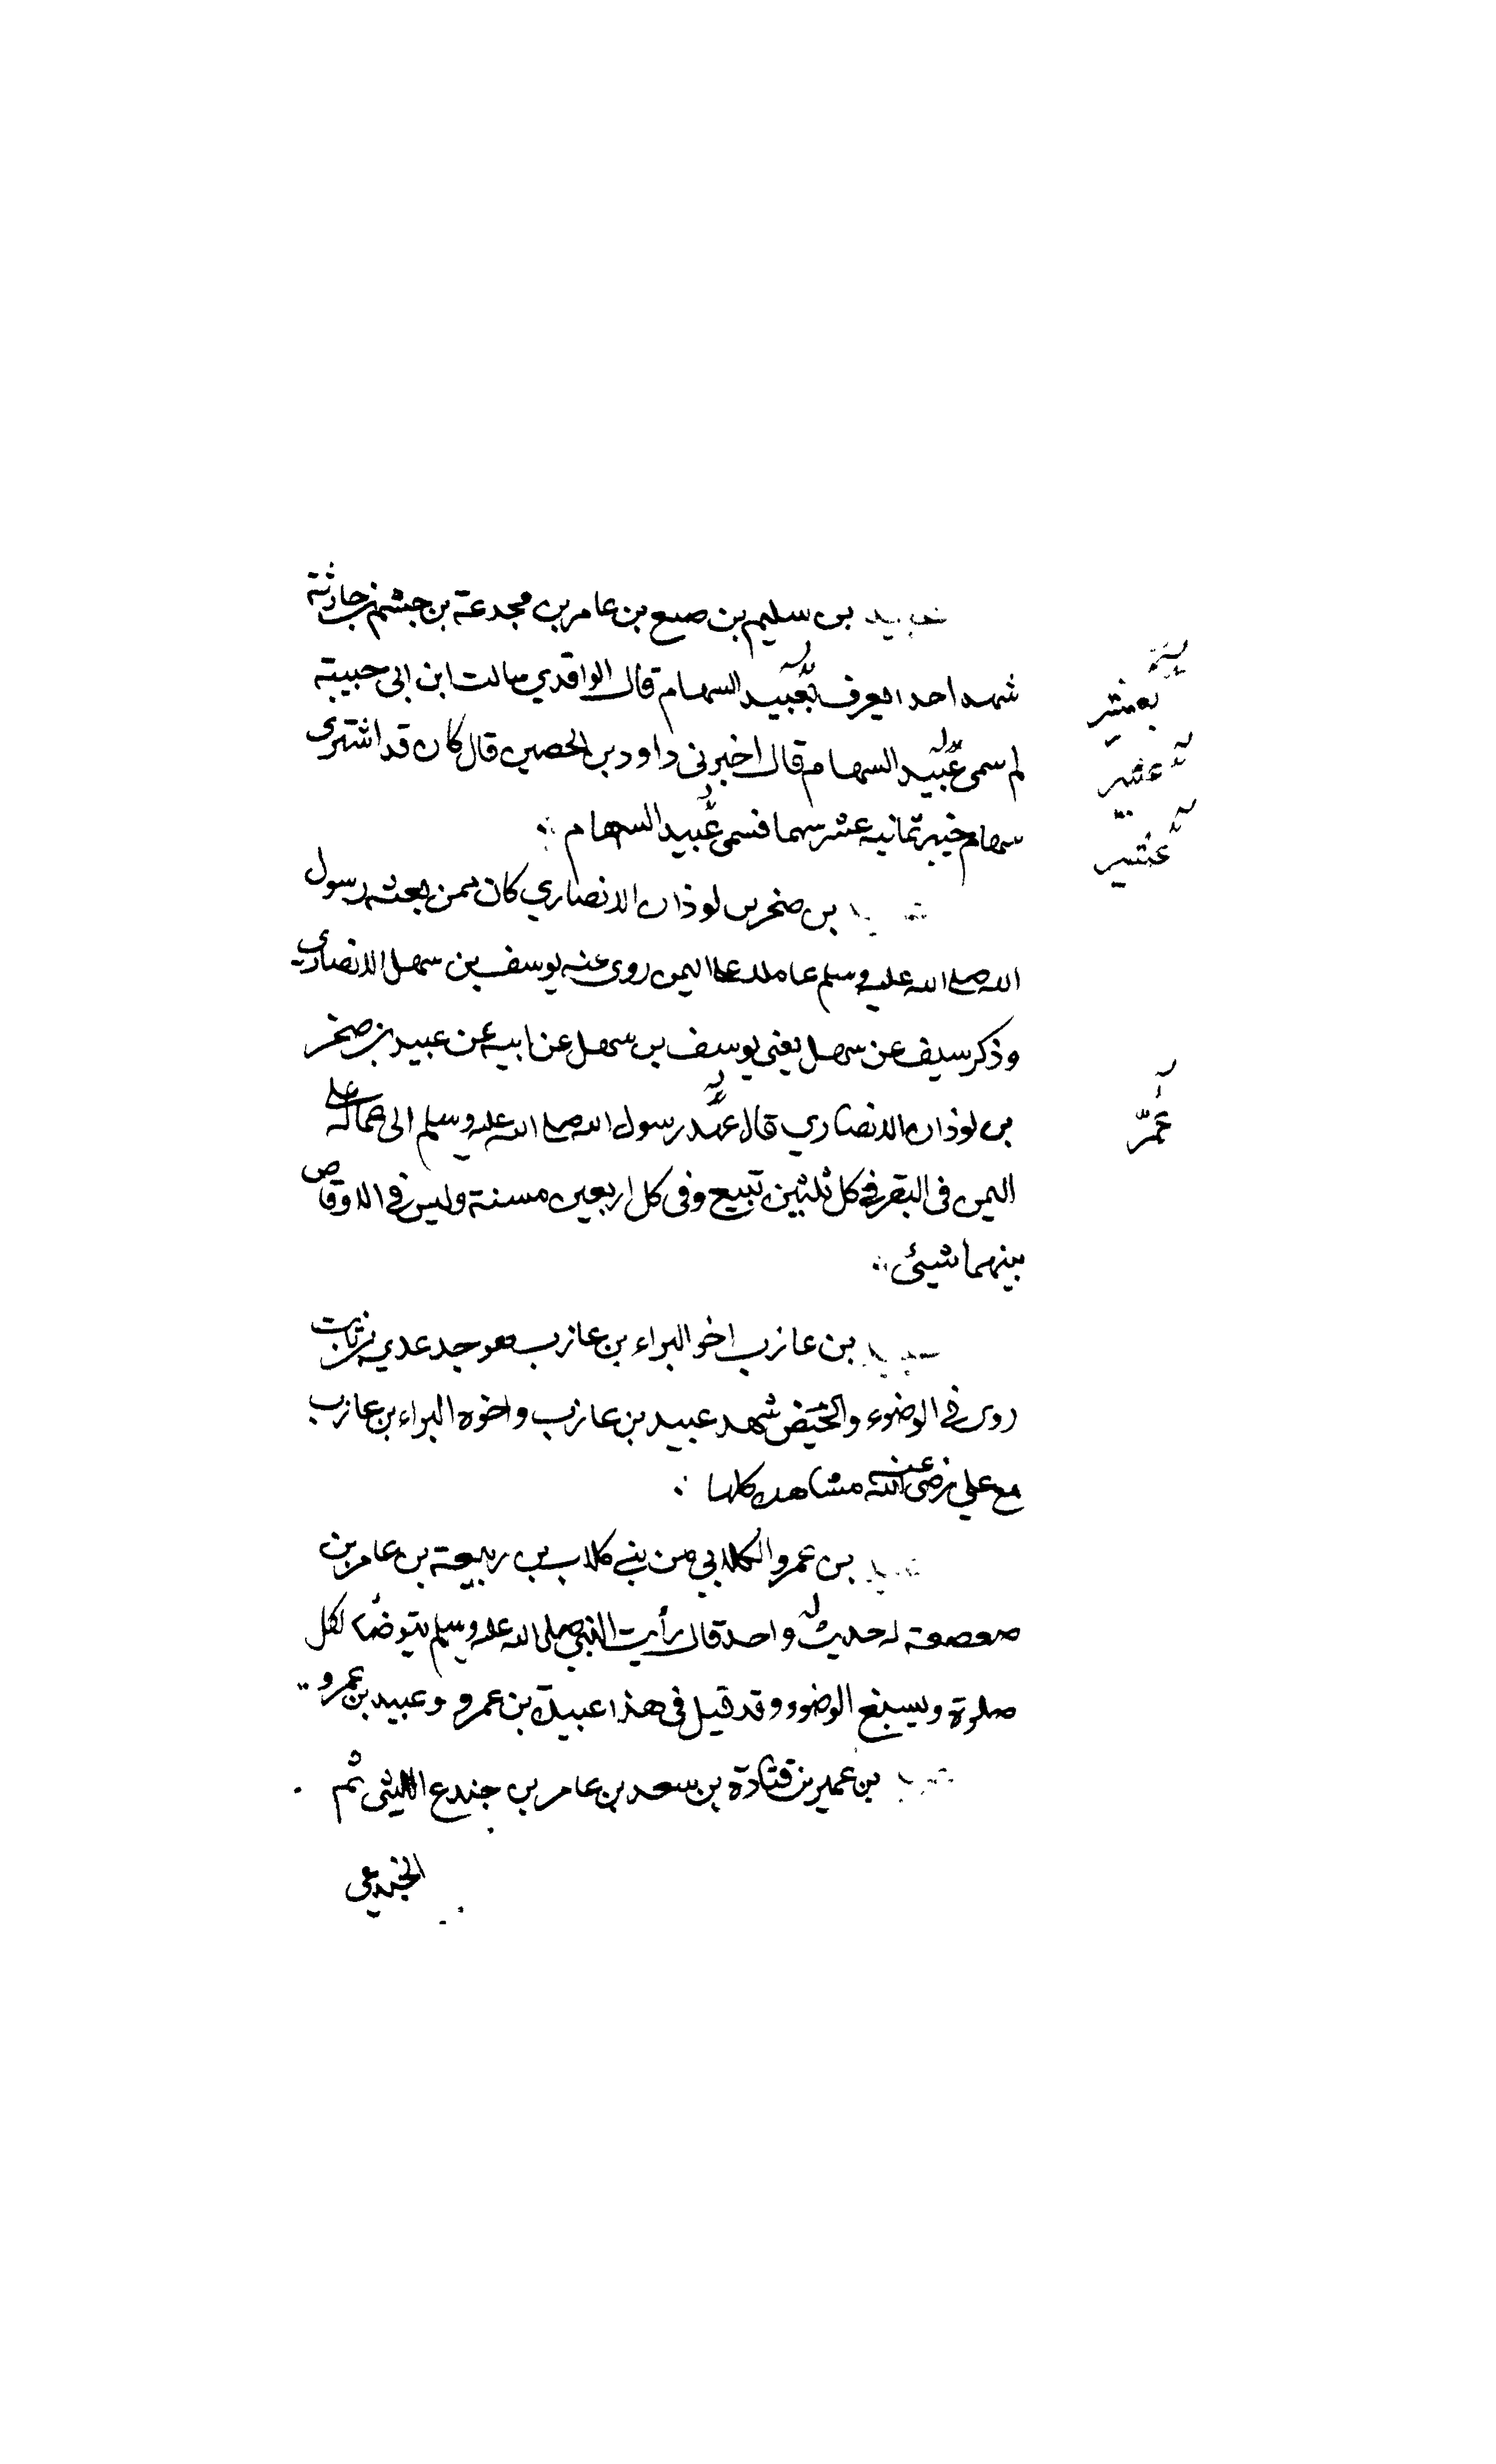 عبيد بن سليم بن ضبع بن عامر بن مجدعة بن جشم بن حارثة
شهد احدا يعرف بعبيد السهام قال الواقدي سالت ابن ابى حبيبة
لم سمى عبيد السهام قال اخبرنى داود بن الحصين قال كان قد اشترى
سهام خيبر ثمانية عشر سهما فسمى عبيد السهام
عبيد بن صخر بن لوذان الانصاري كان ممن بعثه رسول
الله صلى الله عليه وسلم عاملا على اليمن روى عنه يوسف بن سهل الانصارى
وذكر سيف عن سهل يعنى يوسف بن سهل عن ابيه عن عبيد بن صخر
بن لوذان الانصاري قال عهد رسول الله صلى الله عليه وسلم الى عماله على
اليمن فى البقر فى كل ثلثين تبيع وفى كل اربعين مسنة وليس فى الاوقاص
بينهما شيئ
عبيد بن عازب اخو البراء بن عازب هو جد عدي بن ثابت
روى فى الوضوء والحيض شهد عبيد بن عازب واخوه البراء بن عازب
مع علي رضى الله عنه مشاهده كلها
عبيد بن عمرو الكلابي من بنى كلاب بن ربيعة بن عامر بن
صعصعة له حديث واحد قال رأيت النبي صلى الله عليه وسلم يتوضأ لكل
صلوة ويسبغ الوضوء وقد قيل فى هذا عبيدة بن عمرو وعبيد بن عمرو
عبيد بن عمير بن قتادة بن سعد بن عامر بن جندع الليثى ثم
الجندعى